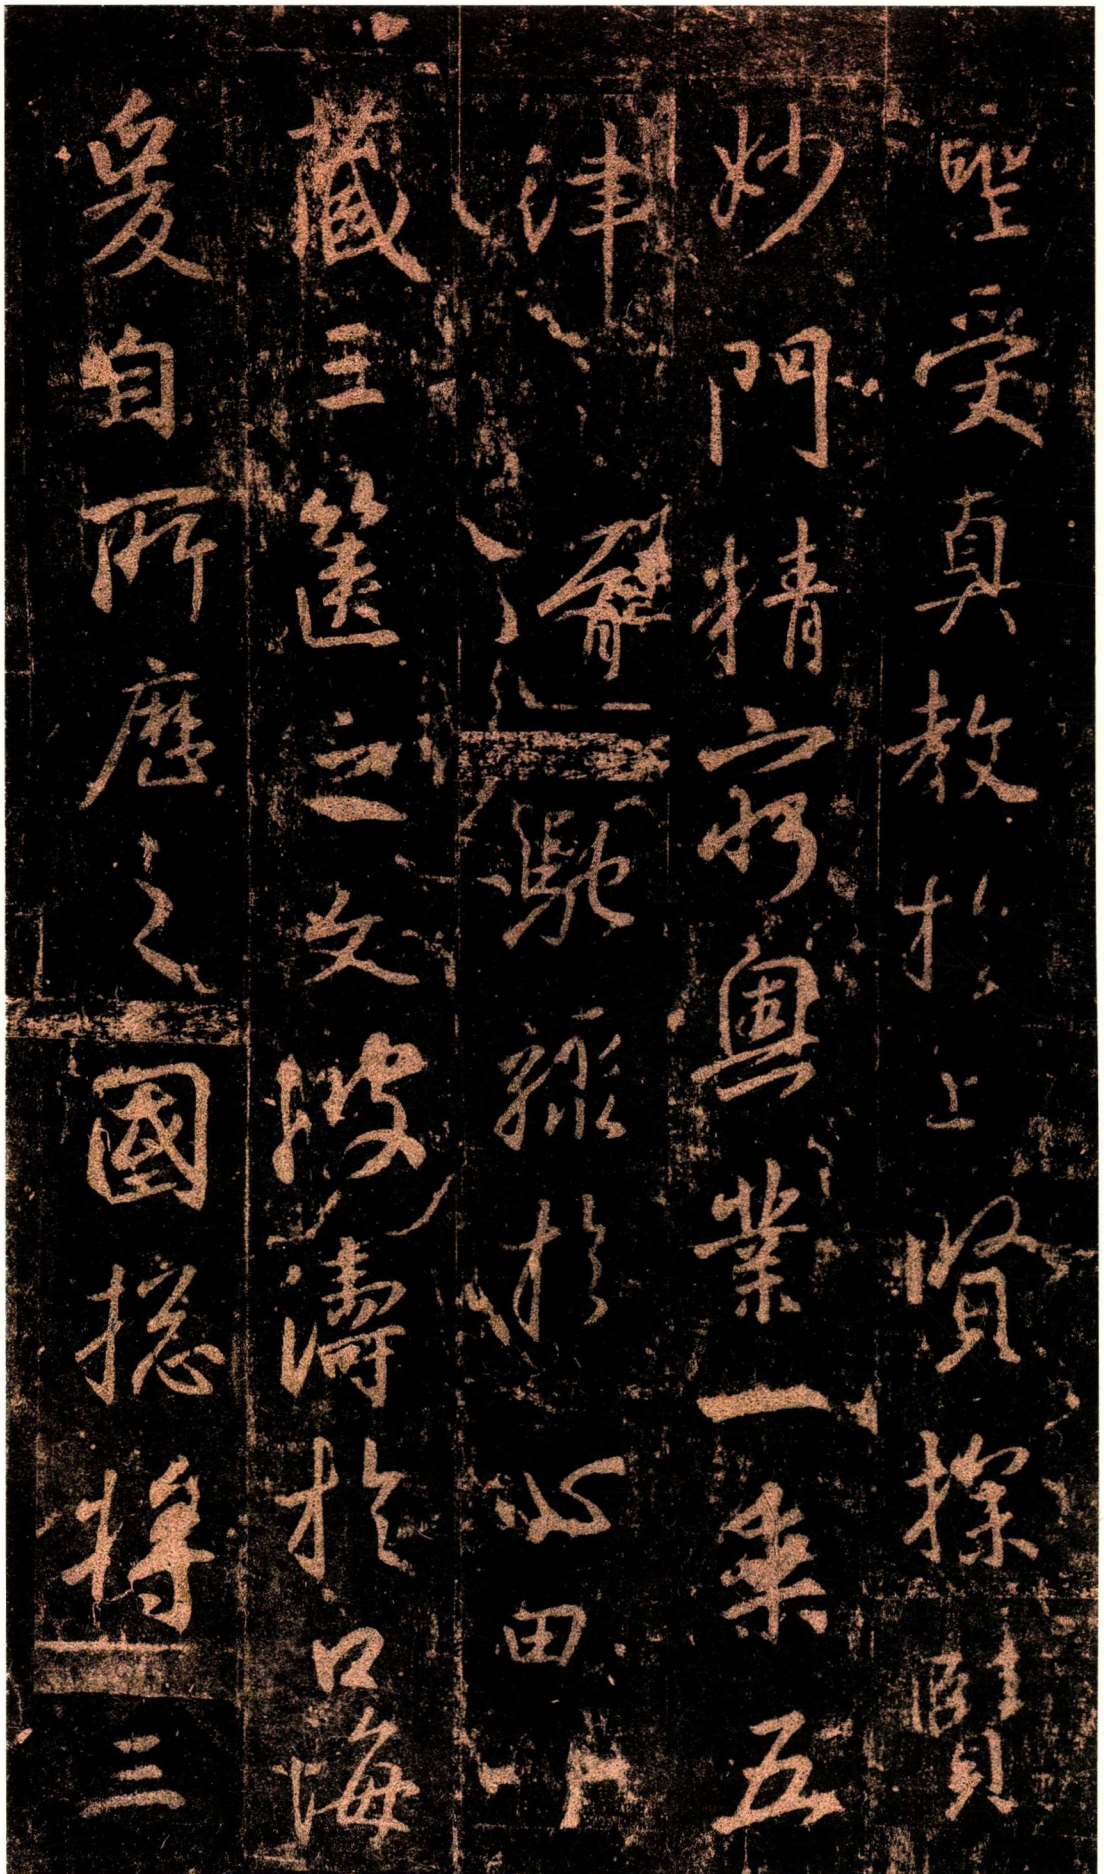 聖受真教於上賢探賾
妙門精窮奧業一乘五
律馳驟於心田
藏三篋之文波濤於口海
爰自所歷之國揔將三